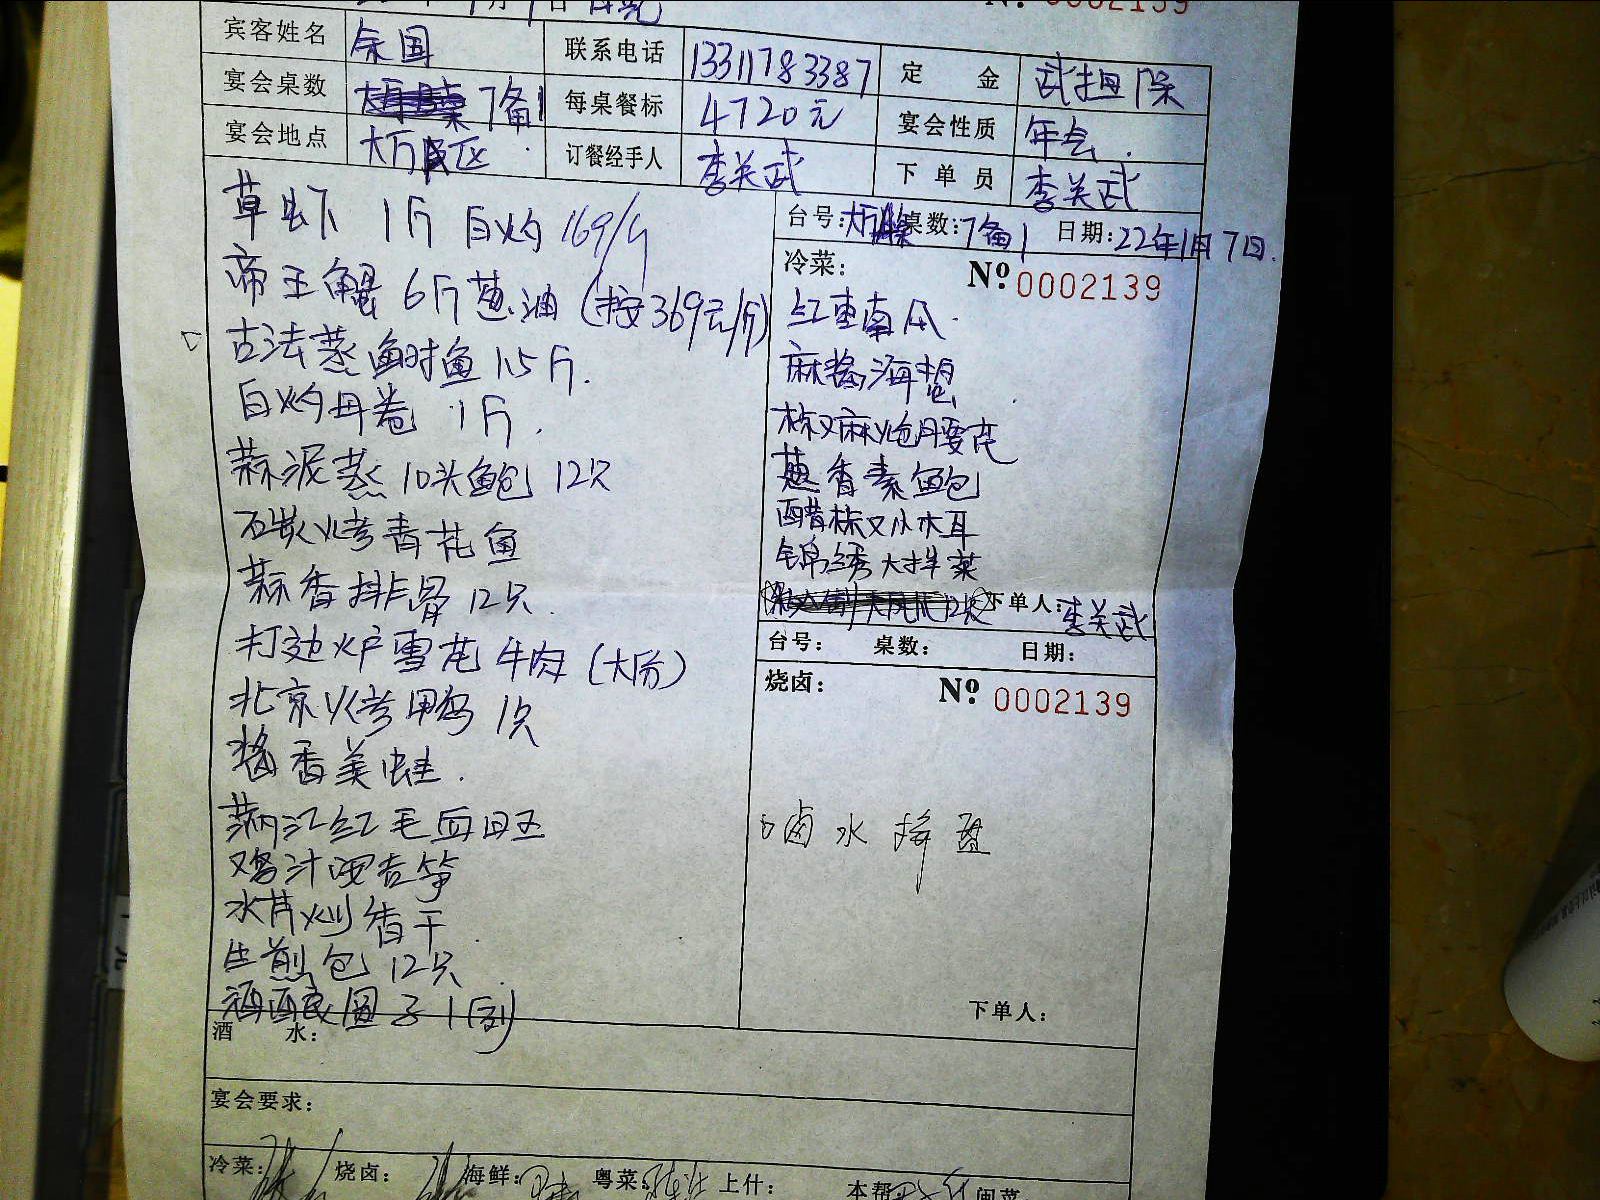 No. 0002139
宾客姓名 余国 联系电话 13311783387 定 金 武担保
宴会桌数 7备1 每桌餐标 4720元 宴会性质 年会.
宴会地点 大厅区 订餐经手人 李关武 下单员 李关武
草虾 1斤 白灼 169/斤
帝王蟹 6斤葱油 (按369元/斤)
古法蒸鲥鱼 1.5斤.
白灼丹卷 1斤.
蒜泥蒸10头鲍 12只
石炭烤青花鱼
蒜香排骨 12只.
打边炉雪花牛肉 (大份)
北京烤鸭 1只
酱香美蛙.
满江红毛血旺
鸡汁
水芹炒香干
生煎包 12只
酒酿圆子 1例
台号: 桌数:7备1 日期:22年1月7日.
冷菜: No 0002139
红枣南瓜.
麻酱海
椒麻炝腰花
葱香素鲍
醋椒小木耳
锦绣大拌菜
下单人:李关武
台号: 桌数: 日期:
烧卤: No 0002139
卤水拼盘
下单人:
酒 水:
宴会要求:
冷菜: 烧卤: 海鲜: 粤菜: 上什: 本帮 闽菜